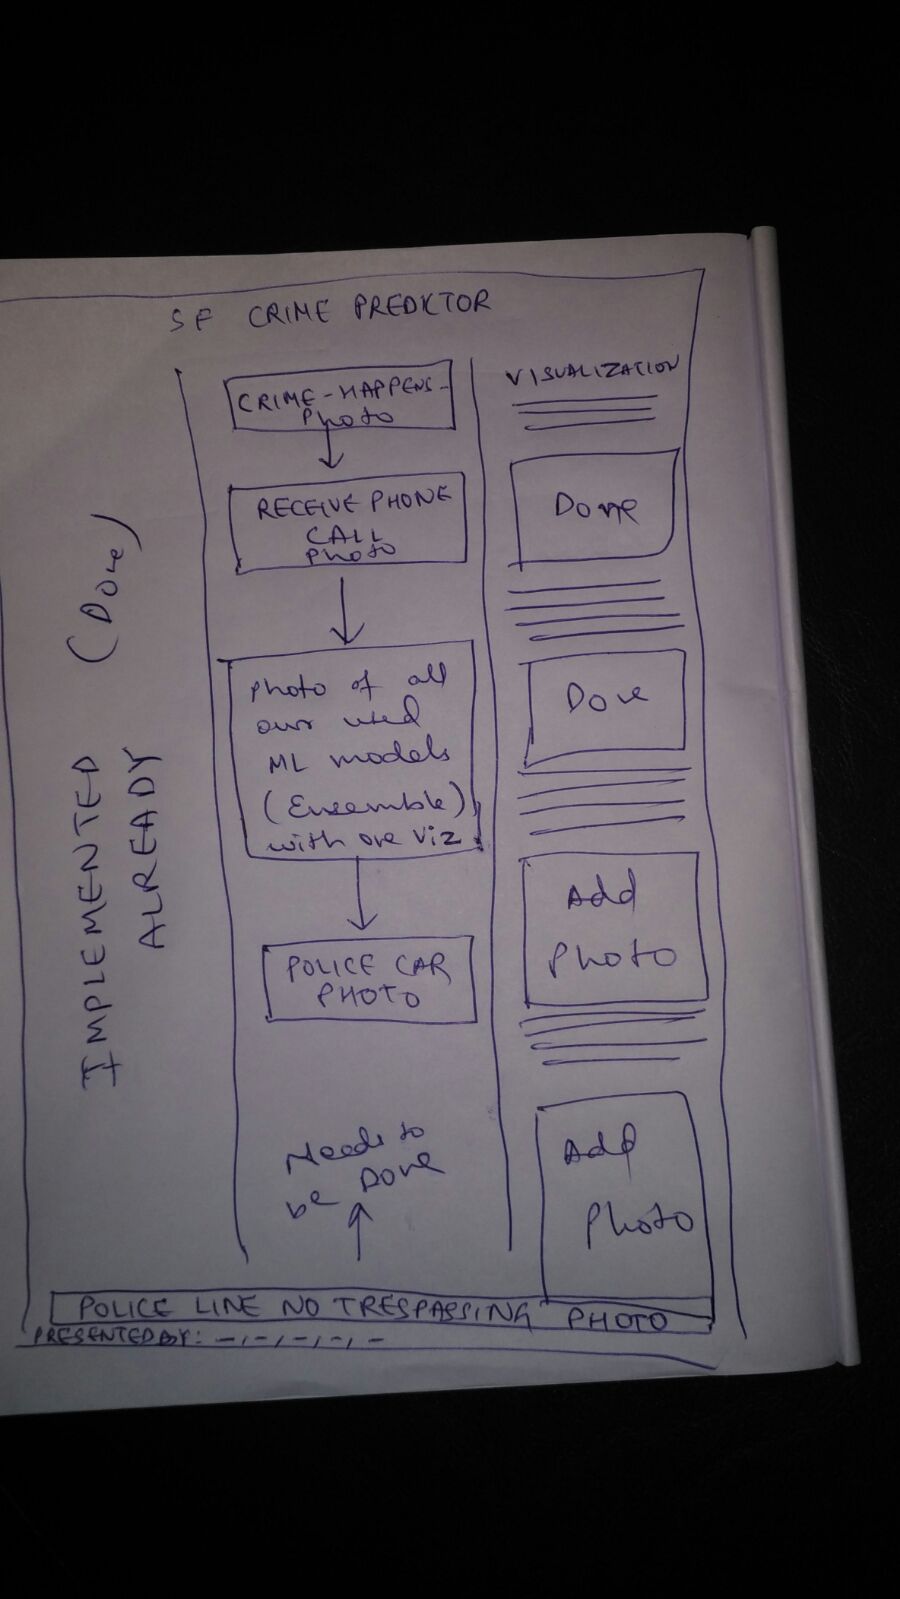 SF CRIME PREDICTOR
IMPLEMENTED
ALREADY
(Done)
CRIME-HAPPENS-
Photo
RECEIVE PHONE
CALL
Photo
photo of all
our used
ML models
(Ensemble)
with one viz
POLICE CAR
PHOTO
Needs to
be Done
VISUALIZATION
Done
Done
Add
Photo
Add
Photo
POLICE LINE NO TRESPASSING PHOTO
PRESENTED BY: -,-,-,-,-